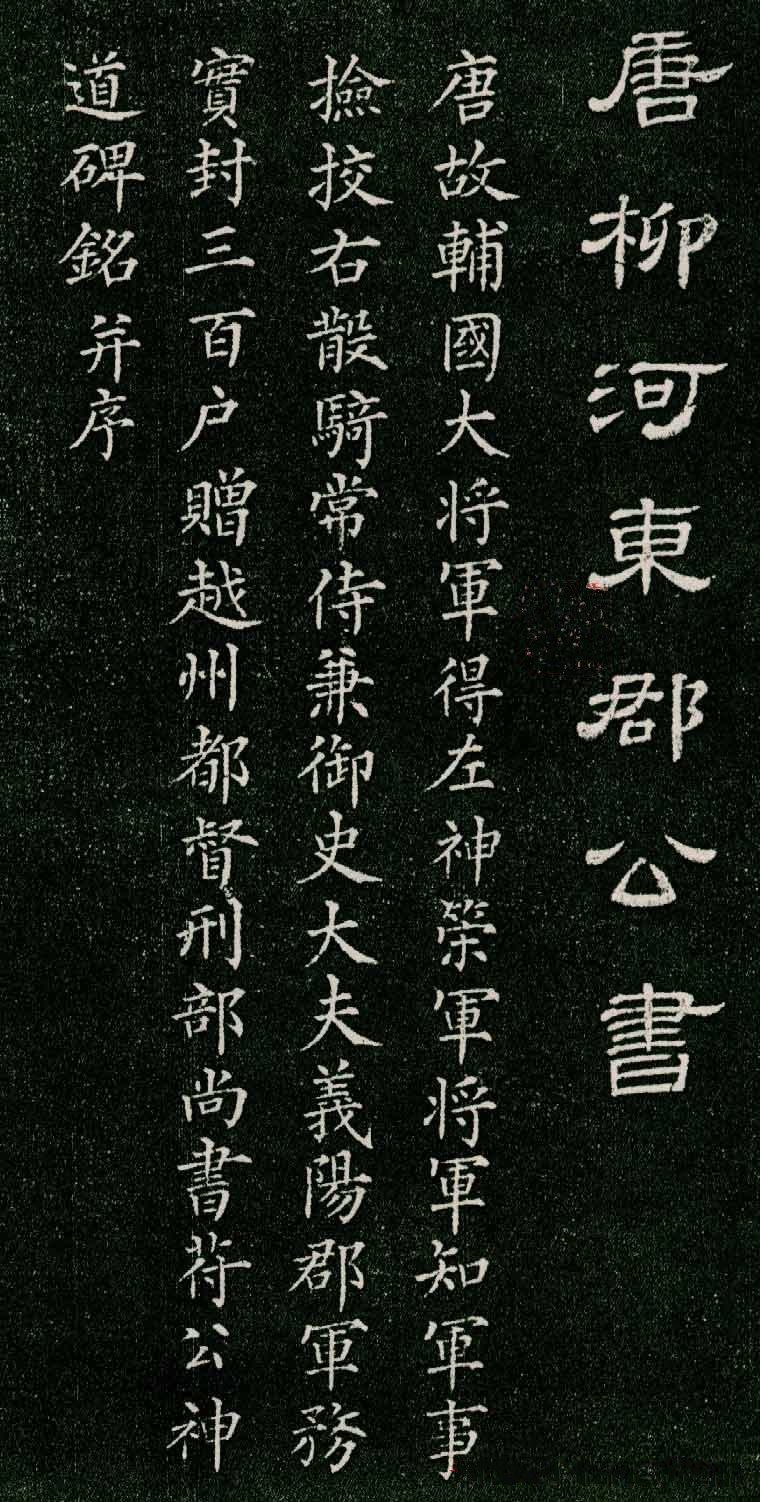 唐柳河東郡公書
唐故輔國大將軍得左神策軍將軍知軍事
撿挍右散騎常侍兼御史大夫義陽郡軍務
實封三百户贈越州都督刑部尚書苻公神
道碑銘并序